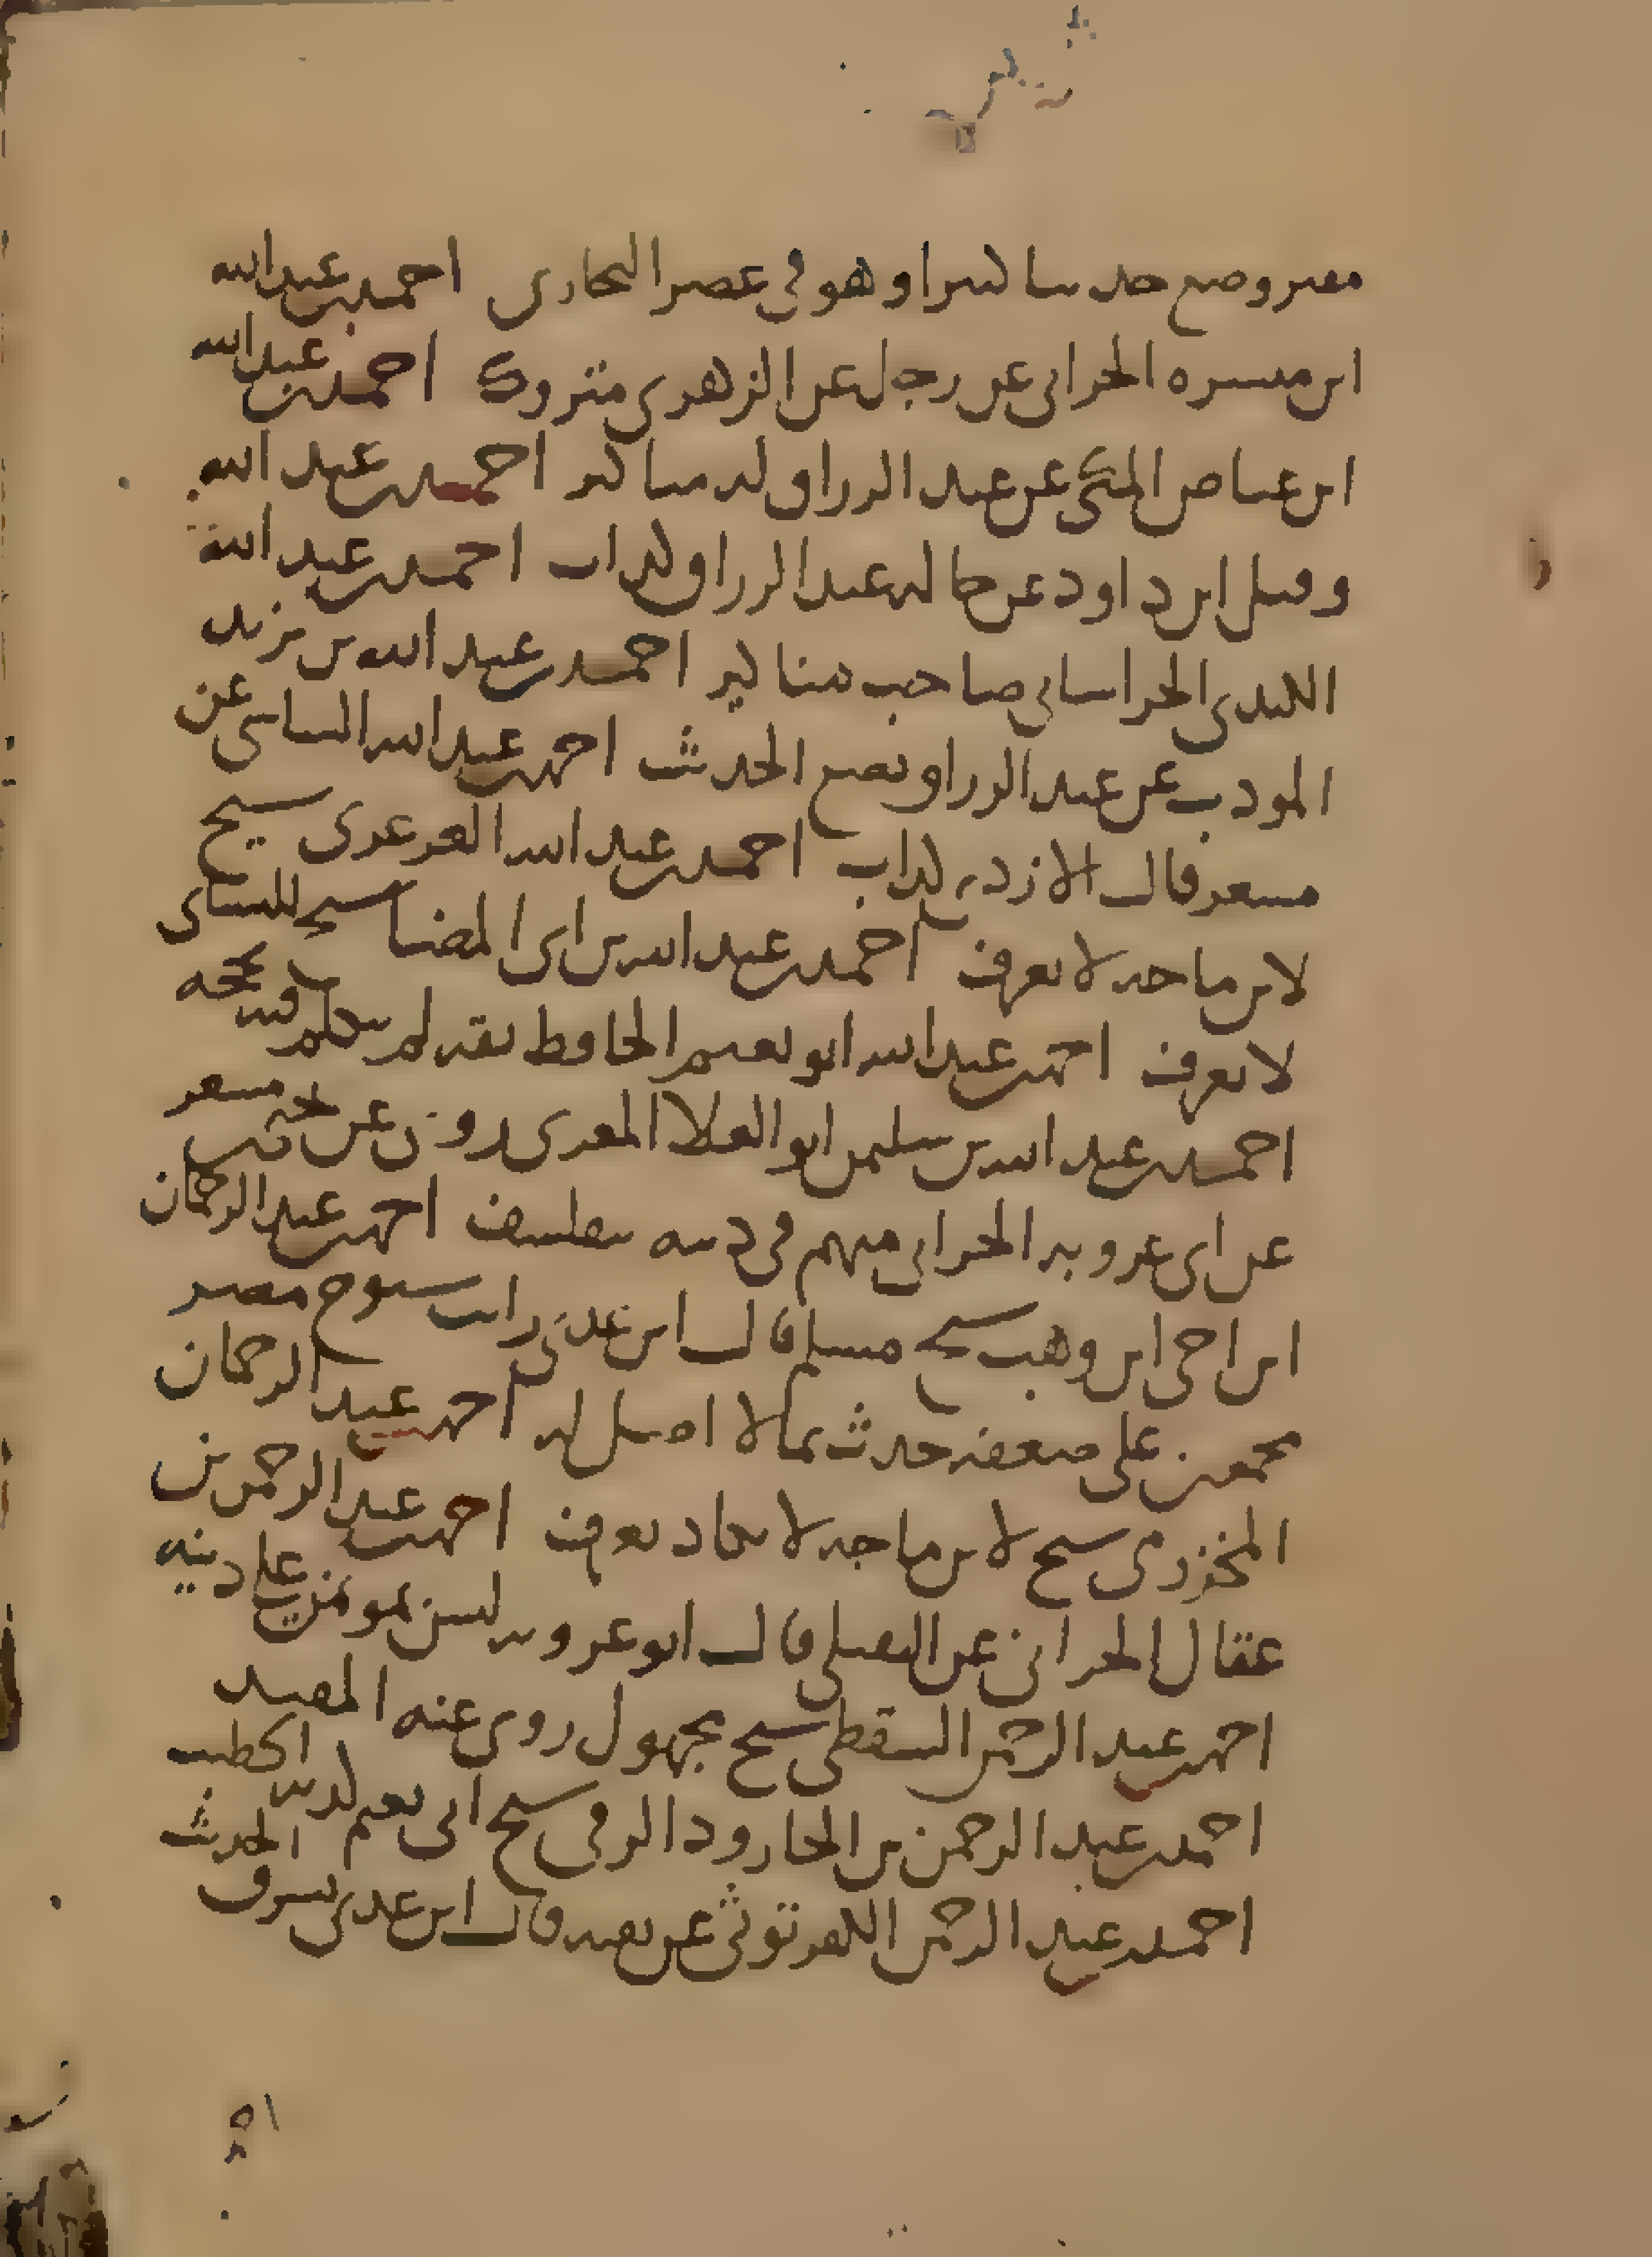 مصر وضع حديثا كثيرا وهو في عصر البخاري احمد بن عبد الله
ابن ميسره الحراني عن رجل عن الزهري متروك احمد بن عبد الله
ابن عياض المكي عن عبد الرزاق له مناكير احمد بن عبد الله
وقيل ابن داود عن خاله عبد الرزاق كذاب احمد بن عبد الله
الكندي الخراساني صاحب مناكير احمد بن عبد الله بن يزيد
المودب عن عبد الرزاق يضع الحديث احمد بن عبد الله الشاشي عن
مسعر قال الازدي كذاب احمد بن عبد الله العرعري شيخ
لابن ماجه لا يعرف احمد بن عبد الله بن ابي المضا شيخ للنساي
لا يعرف احمد بن عبد الله ابو نعيم الحافظ ثقه لم يتكلم فيه بحجه
احمد بن عبد الله بن سليمن ابو العلا المعري روى عن
عن ابي عروبه الحراني متهم في دينه يتفلسف احمد بن عبد الرحمان
ابن اخي ابن وهب شيخ مسلم قال ابن عدي رايت شيوخ مصر
مجمعين على ضعفه حدث بما لا اصل له احمد بن عبد الرحمان
المخزومي شيخ لابن ماجه لا يكاد يعرف احمد بن عبد الرحمن بن
عقال الحراني عن النفيلي قال ابو عروبه ليس بموتمن على دينه
احمد بن عبد الرحمن السقطي شيخ مجهول روى عنه المفيد
احمد بن عبد الرحمن بن الجارود الرقي شيخ ابي نعيم كذبه الخطيب
احمد بن عبد الرحمن الكفرتوثي عن بقيه قال ابن عدي يسرق الحديث